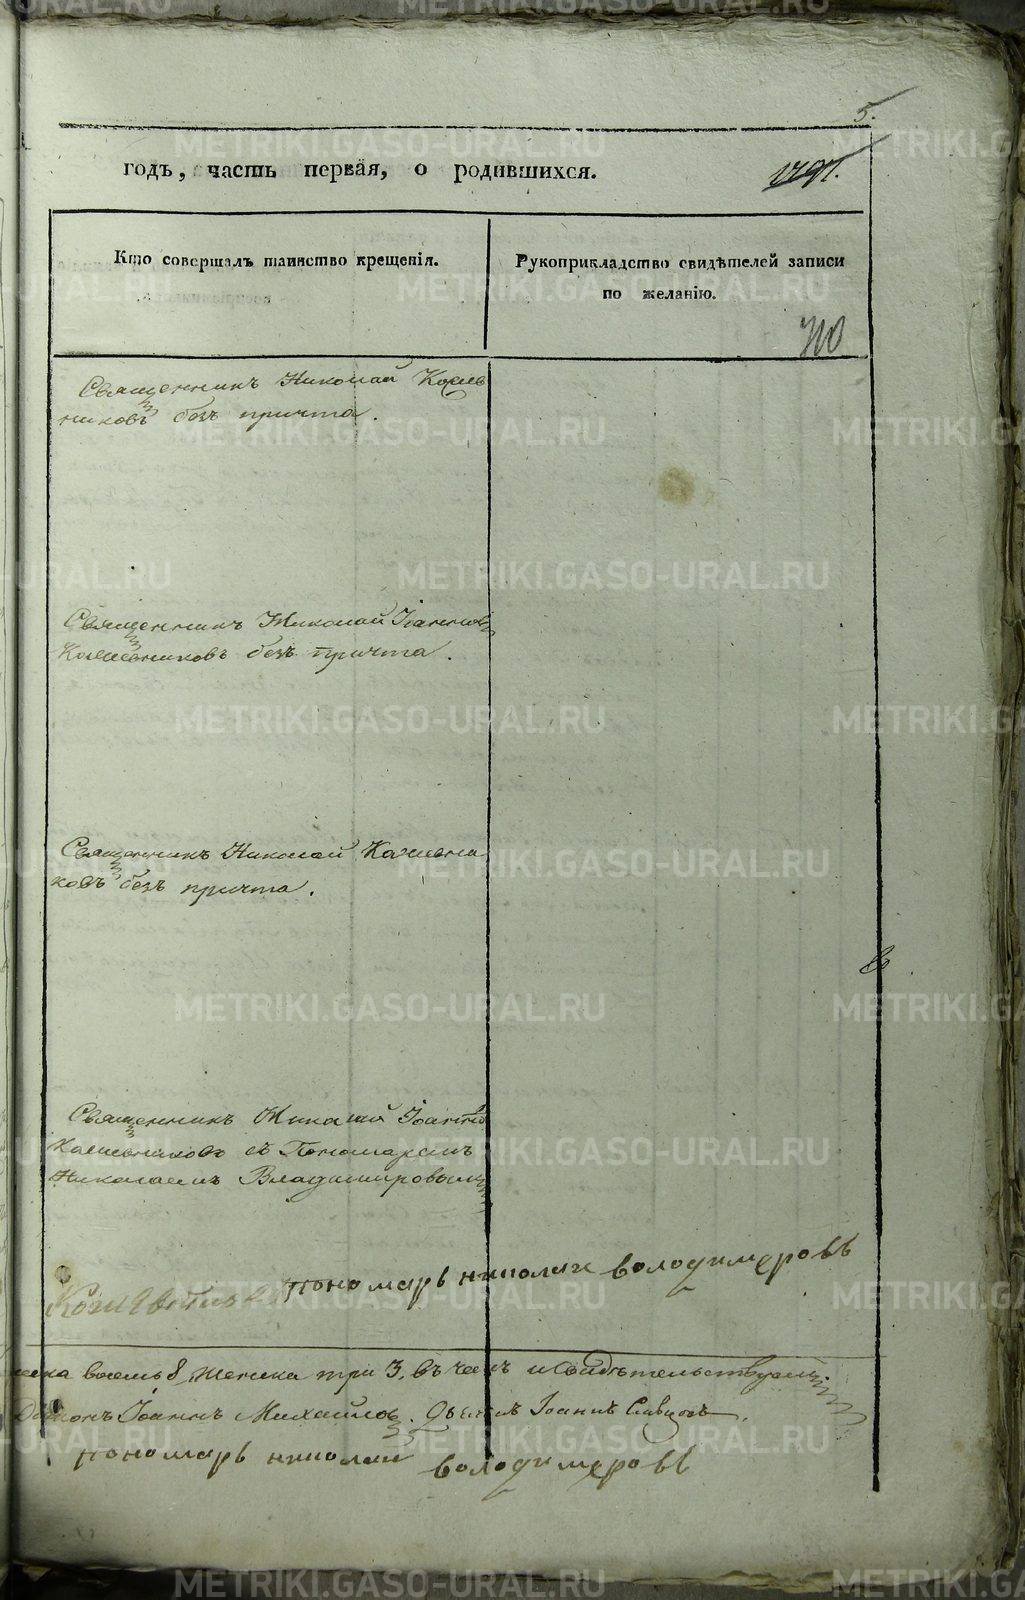 METRIKI.GASO-URAL.RU
5.
годъ, часть первая, о родившихся.
Кто совершалъ таинство крещенія.
Рукоприкладство свидѣтелей записи
по желанію.
Священникъ Николай Кожев
никовъ безъ причта.
Священникъ Николай Іоаннов
Кожевниковъ безъ причта.
Священникъ Николай Кожевни
ковъ безъ причта.
Священникъ Николай Іоаннов
Кожевниковъ съ Пономаремъ
Николаемъ Владимировымъ
пономарь николаи володимеровъ
восемь 8, женска три 3, въ чемъ и свидѣтельствуемъ.
Діаконъ Іоаннъ Михайлов. Дьячекъ Іоаннъ
пономарь николаи володимеровъ